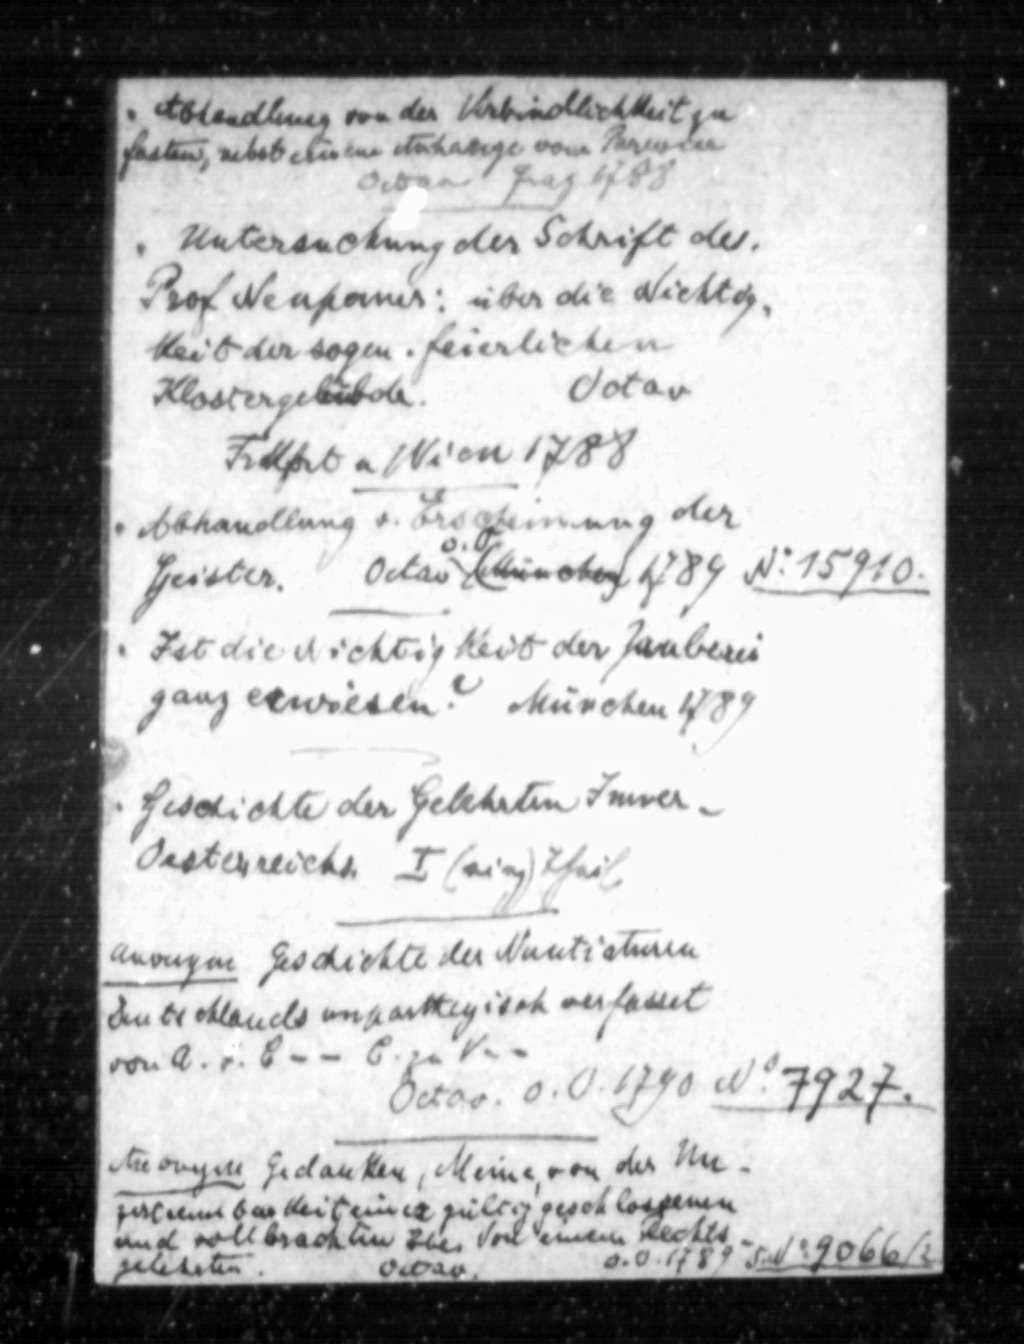 • Abhandlung von der Verbindlichkeit zu
fasten, nebst einem Anhange vom
Octav Graz 1788
• Untersuchung der Schrift des.
Prof : über die Nichtig.
keit der sogen. feierlichen
Klostergelübde. Octav
Frkfrt u Wien 1788
• Abhandlung v. Erscheinung der
Geister. Octav o.O. München 1789 No: 15910.
• Ist die Nichtigkeit der Zauberei
ganz erwiesen? München 1789
• Geschichte der Gelehrten Inner-
Oesterreichs. I (einz) Theil
Anonym Geschichte der Nuntiaturen
Deutschlands unpartheyisch verfasset
von A. v. E - - E. zu V - -
Octav. o.O. 1790 No 7927.
Anonym Gedanken, Meine, von der Un-
zertrennbarkeit einer gültig geschlossenen
und vollbrachten Ehe. Von einem Rechts-
gelehrten. Octav. o.O. 1789 S. No: 9066/2